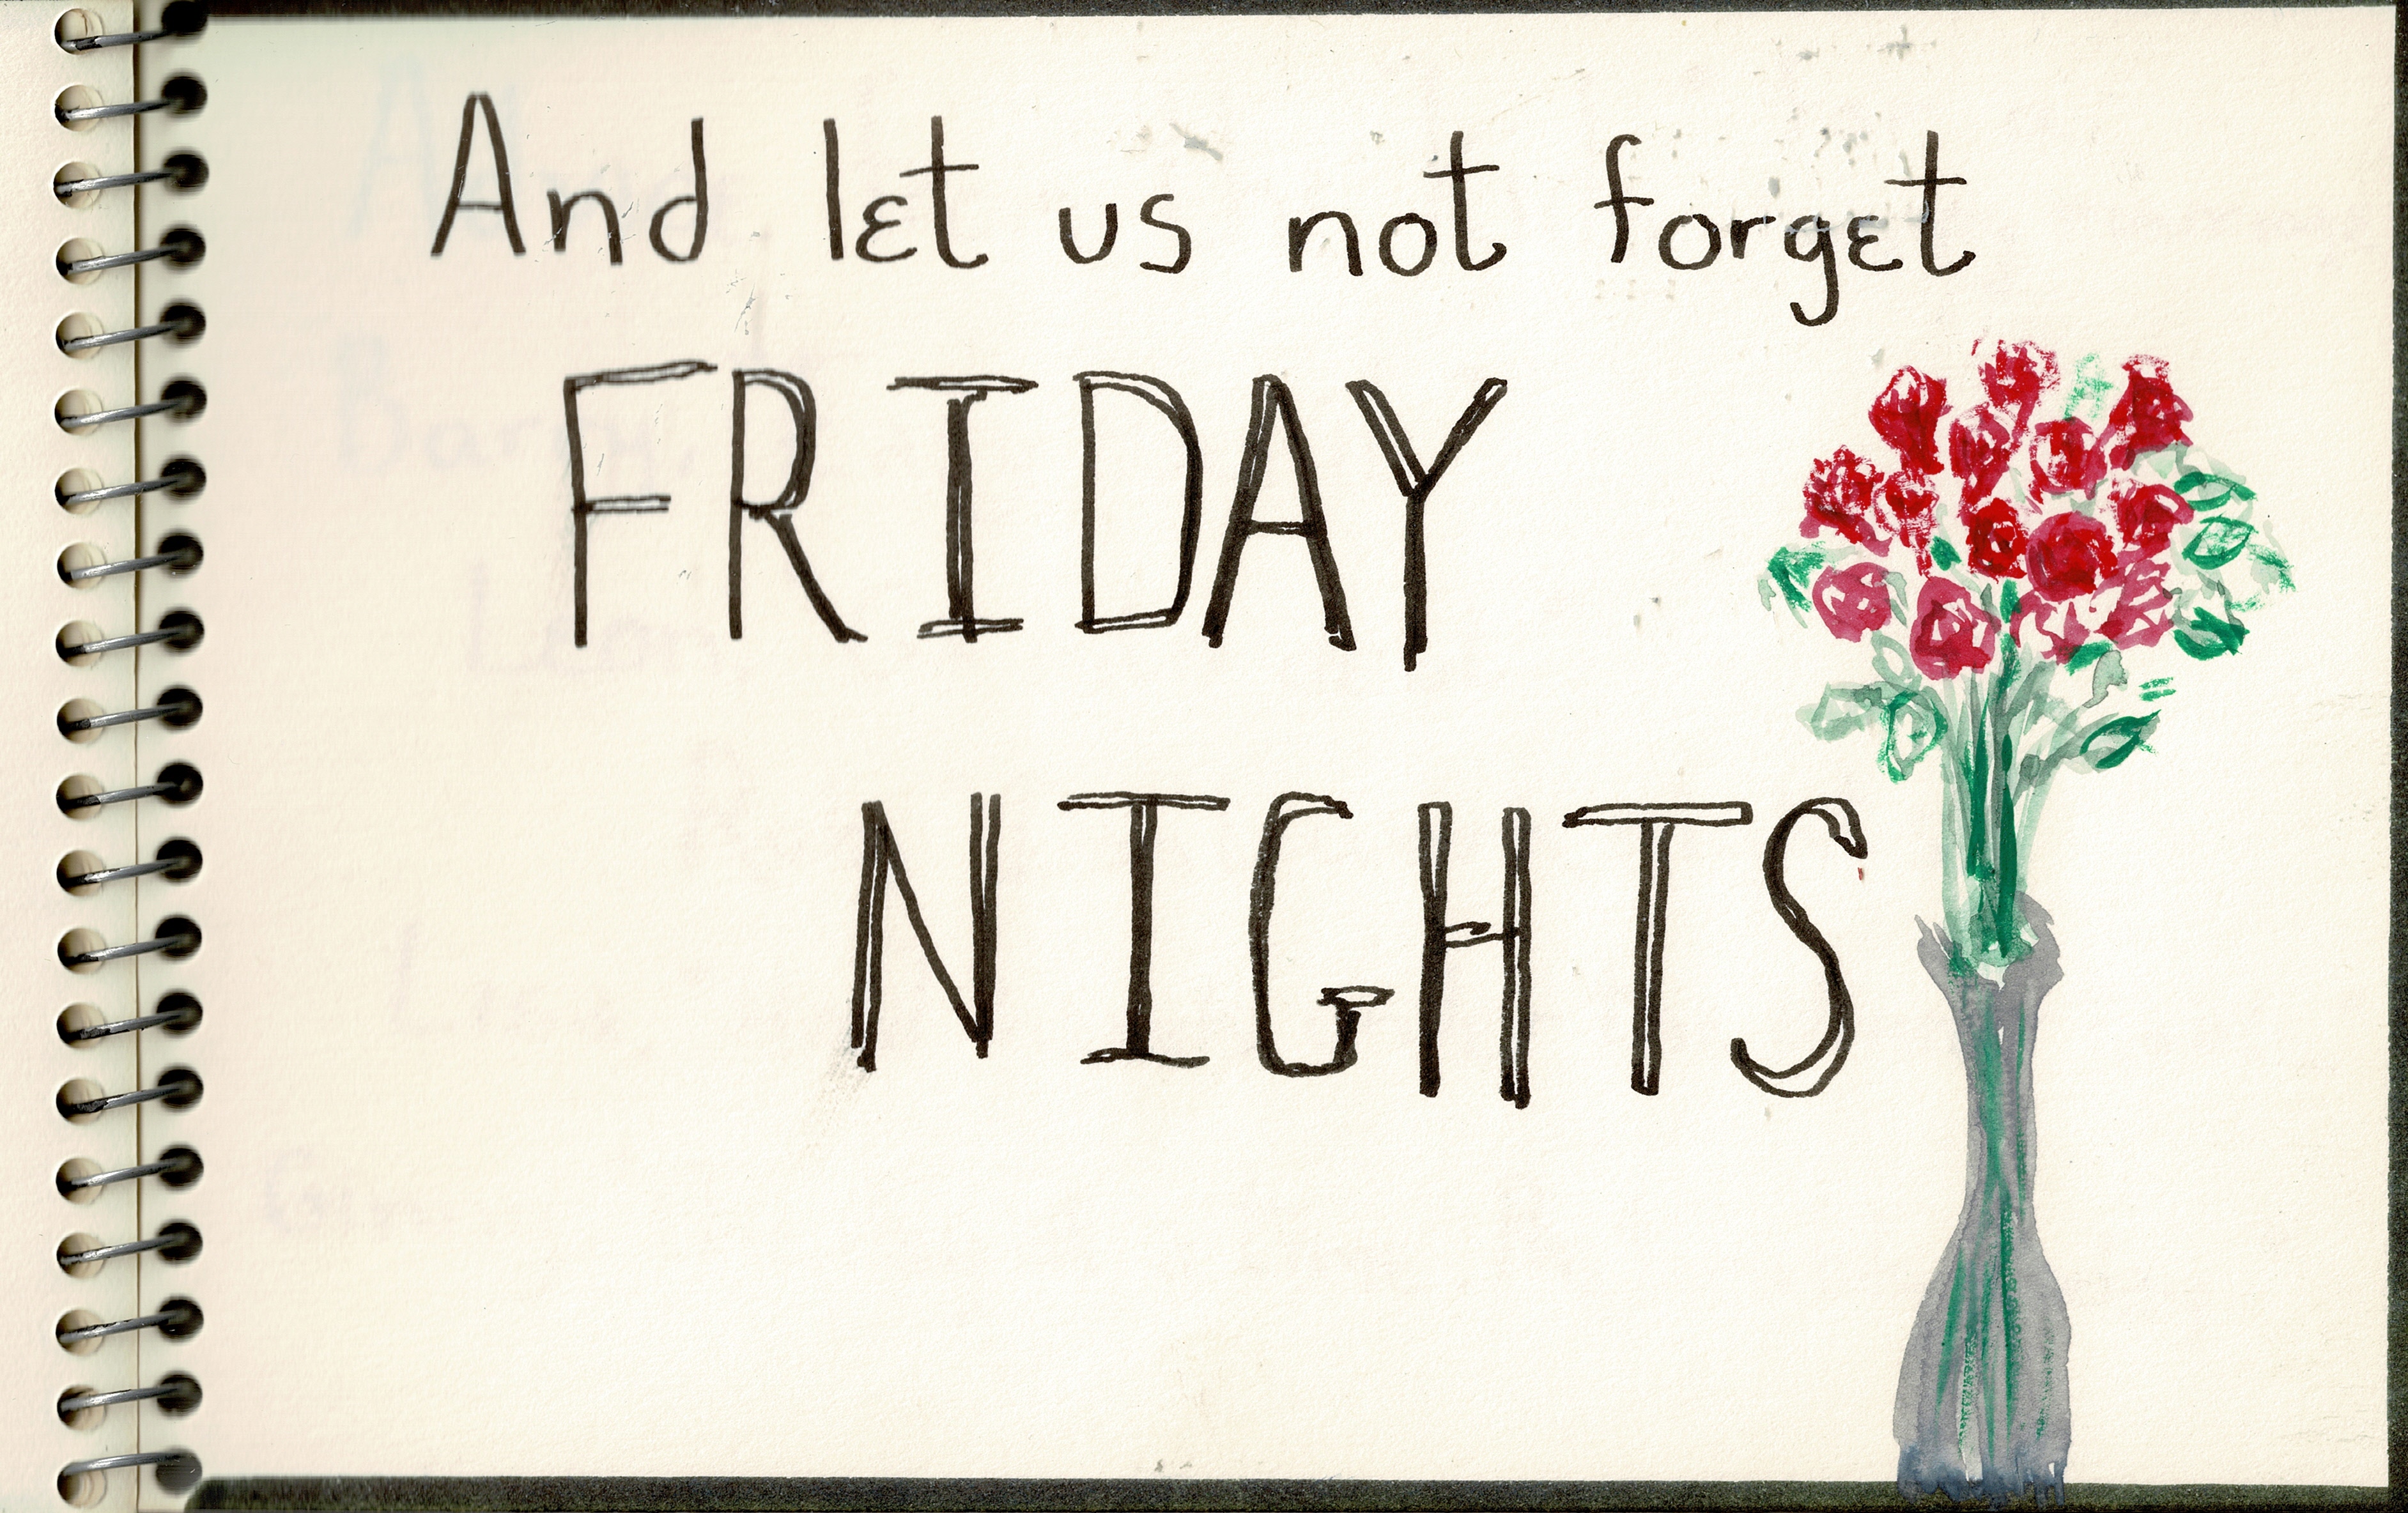 And let us not forget
FRIDAY
NIGHTS